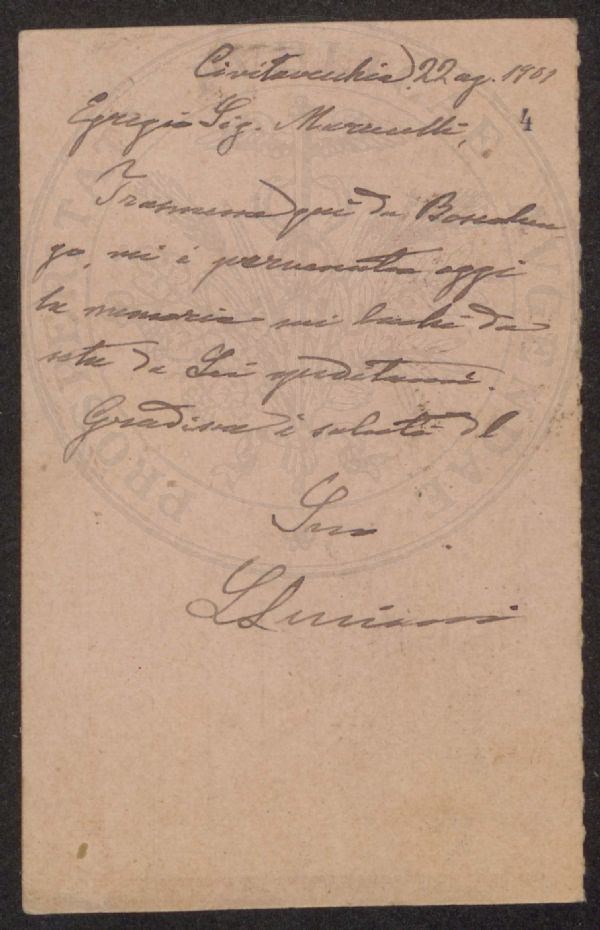 Civitavecchia, 22 ag. 1901
4
Egregio Sig. Marucelli,
Trasmessa qui da Boscolun-
go, mi è pervenuta oggi
la memoria sui bachi da
seta da Lei speditami.
Gradisca i saluti del
Suo
L Luciani